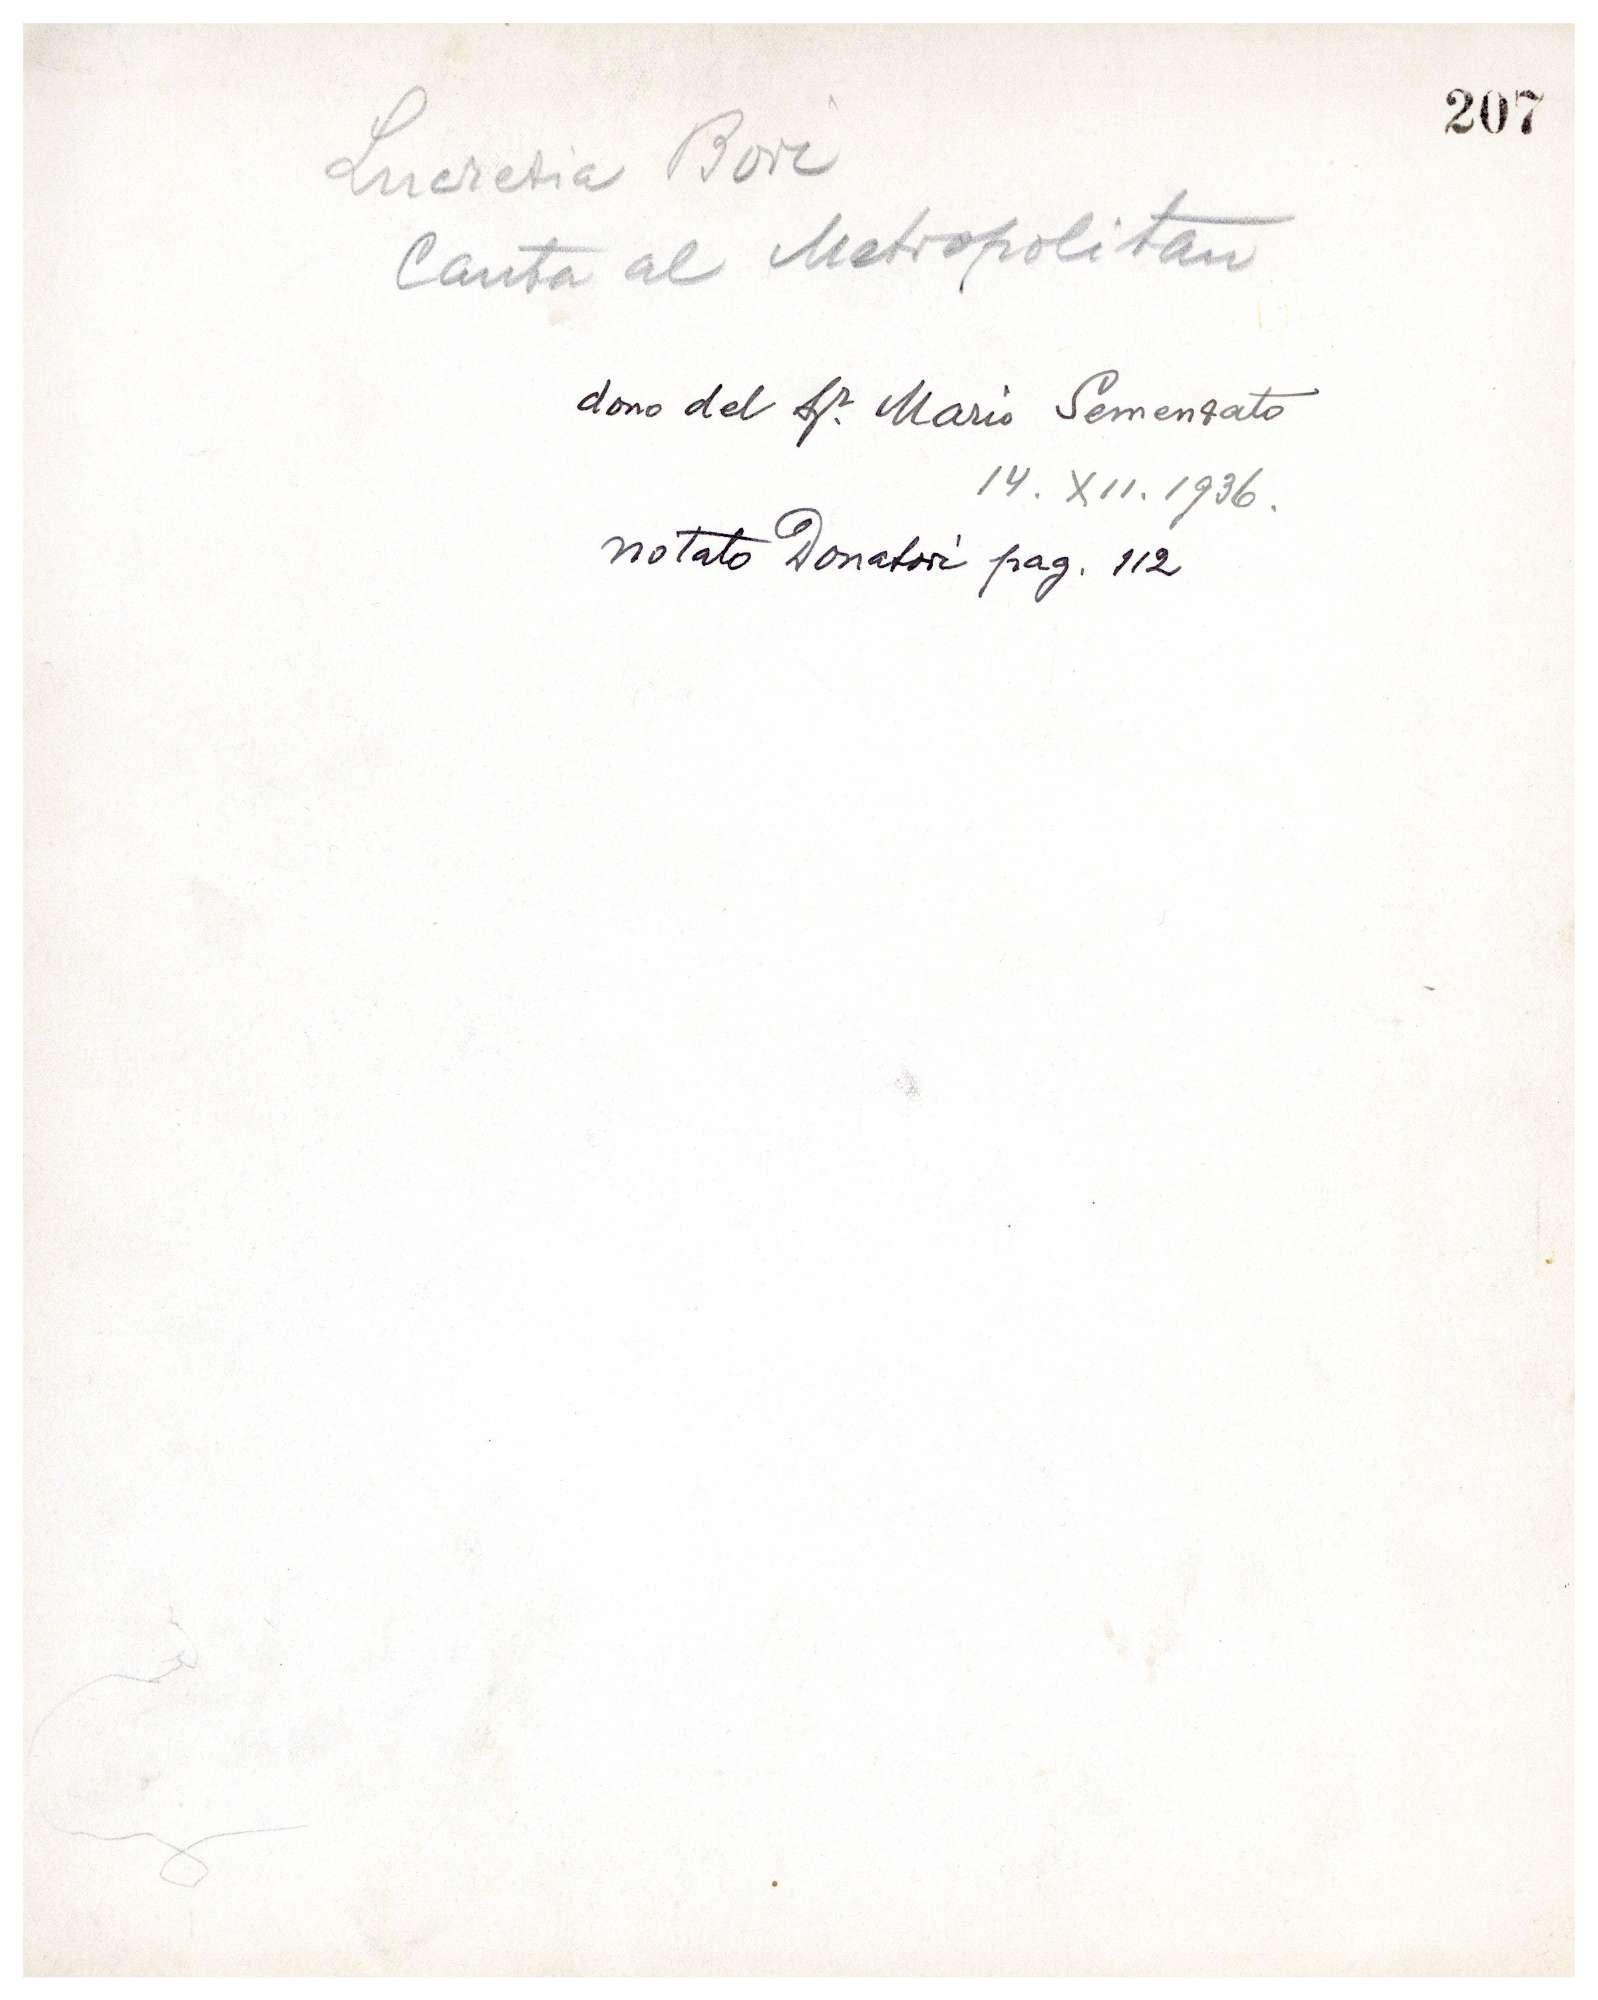 207
Lucrezia Bori
Canta al Metropolitan
dono del Sr. Mario Semenzato
14. XII. 1936.
notato Donatori pag. 112